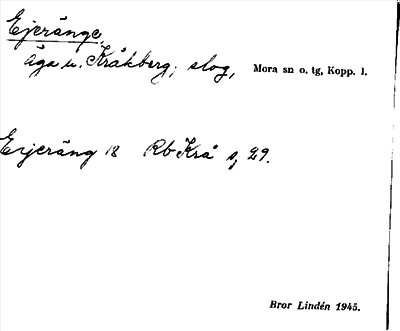 Ejeränge,
Äga u. Kråkberg; slog, Mora sn o. tg, Kopp. l.
Eijeräng 18 Rb Krå s, 29.
Bror Lindén 1945.